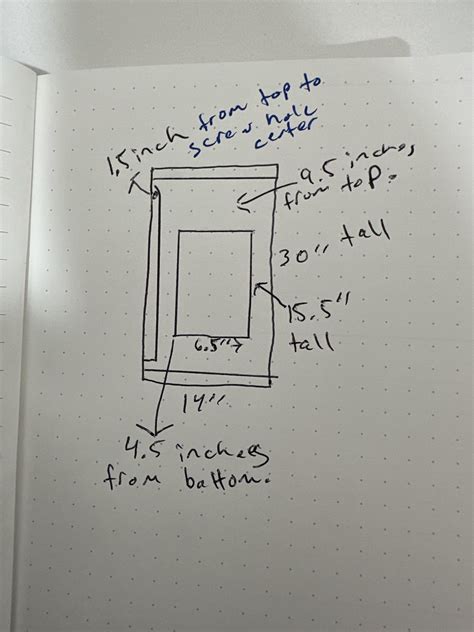 1.5 inch from top to
screw hole
center
9.5 inches
from top.
30" tall
15.5"
tall
6.5"
14"
4.5 inches
from bottom.